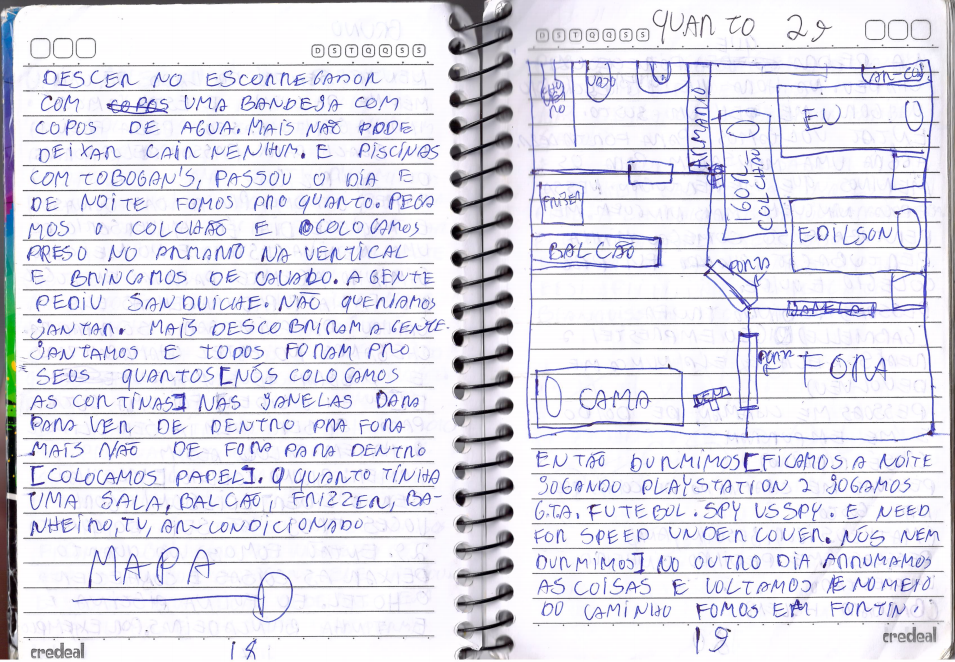 D S T Q Q S S
DESCER NO ESCORREGADOR
COM UMA BANDEJA COM
COPOS DE AGUA. MAIS NÃO PODE
DEIXAR CAIR NENHUM. E PISCINAS
COM TOBOGAN'S, PASSOU O DÍA E
DE NOITE FOMOS PRO QUARTO. PEGA
MOS COLCHÃO E COLOCAMOS
PRESO NO ARMARIO NA VERTICAL
E BRINCAMOS DE CAVADO. A GENTE
PEDIU SANDUICHE. NÃO QUERIAMOS
JANTAR. MAIS DESCOBRIRAM A GENTE
JANTAMOS E TODOS FORAM PRO
SEUS QUARTOS [NÓS COLOCAMOS
AS CORTINAS] NAS JANELAS DARA
PARA VER DE DENTRO PRA FORA
MAIS NÃO DE FORA PARA DENTRO
[COLOCAMOS PAPEL]. O QUARTO TÍNHA
UMA SALA, BALCÃO, FRIZZER, BA-
NHEIRO, TV, AR-CONDICIONADO
MAPA
credeal
18
D S T Q Q S S
QUARTO 29
AR-CON.
VADO
ARMARIO
EU
IGOR
COLCHÃO
FRIZER
BALCÃO
EDILSON
PORTA
JANELA
PORTA
FORA
CAMA
ENTÃO DURMIMOS [FICAMOS A NOITE
JOGANDO PLAYSTATION 2 JOGAMOS
G.T.A. FUTEBOL. SPY US SPY. E NEED
FOR SPEED UNDER COVER. NÓS NEM
DURMÍMOS] NO OUTRO DIA ARRUMAMOS
AS COÍSAS E VOLTAMOS E NO MEIO
DO CAMINHO FOMOS EM FORTIN.
19
credeal